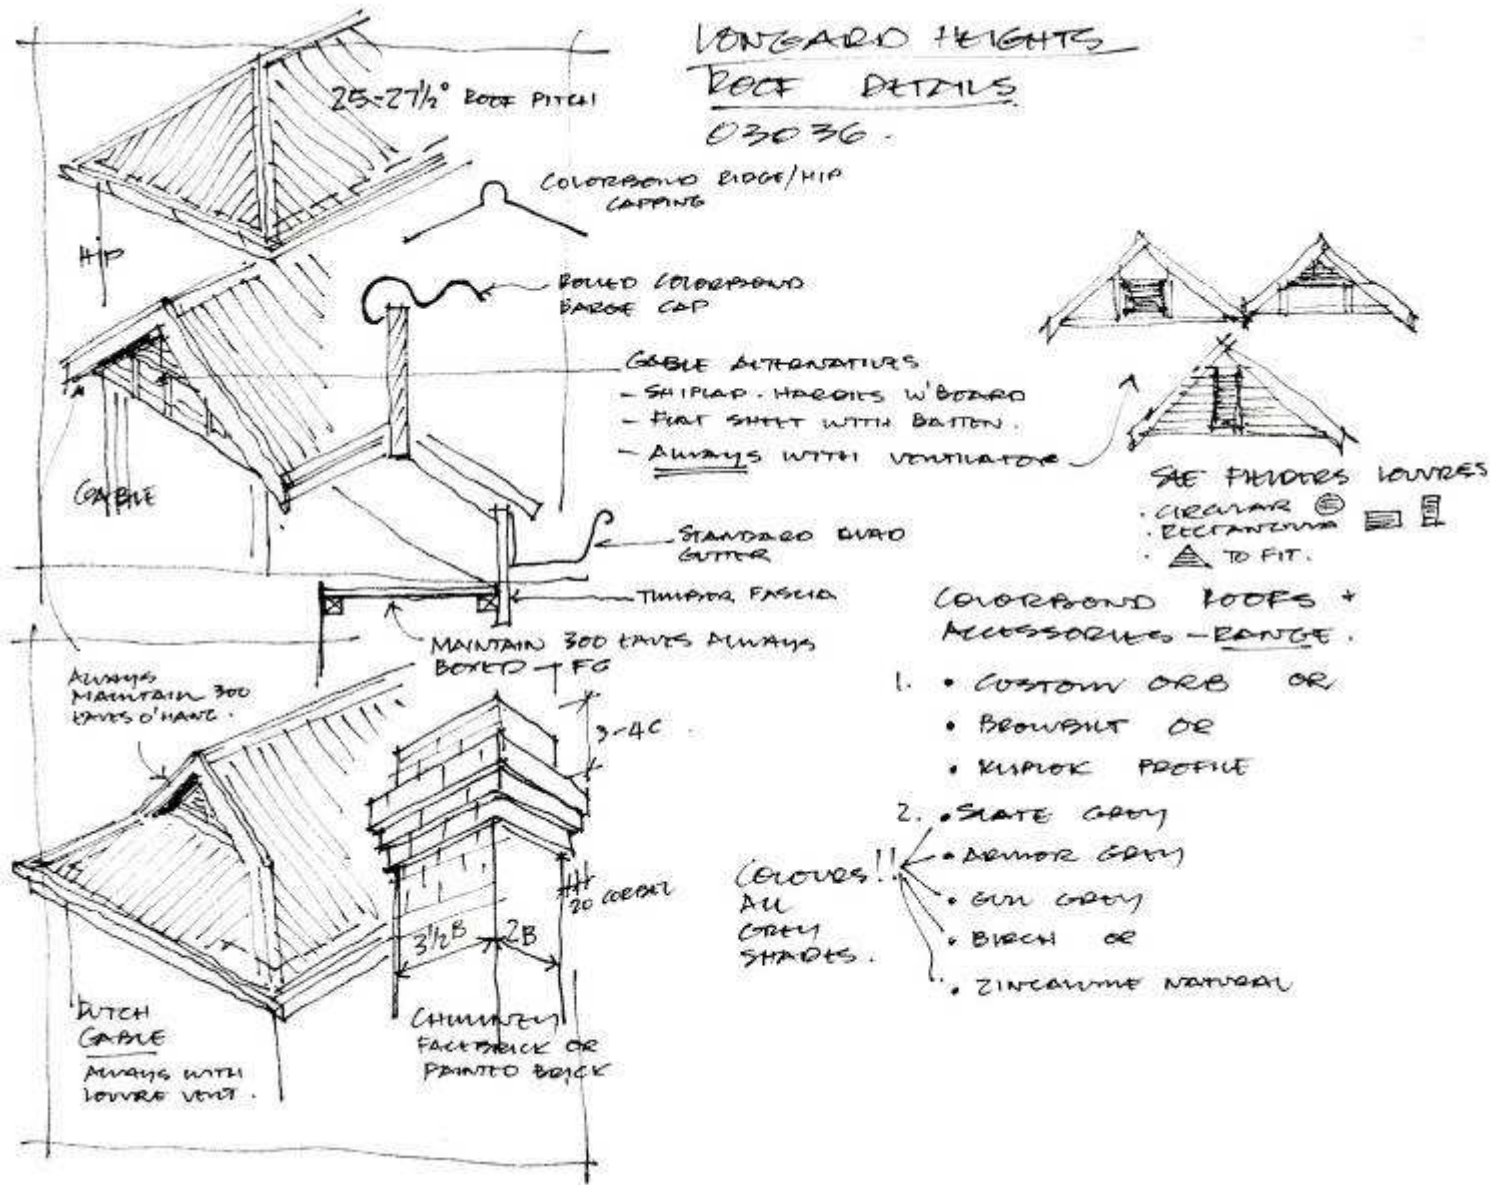 LONGARD HEIGHTS
ROOF DETAILS
03036.
25-27½° ROOF PITCH
COLORBOND RIDGE/HIP
CAPPING
HIP
ROLLED COLORBOND
BARGE CAP
GABLE ALTERNATIVES
- SHIPLAP. HARDIES W'BOARD
- FLAT SHEET WITH BATTEN.
- ALWAYS WITH VENTILATOR
GABLE
SEE FIELDERS LOUVRES
. CIRCULAR
. RECTANGULAR
. TO FIT.
STANDARD QUAD
GUTTER
TIMBER FASCIA
MAINTAIN 300 EAVES ALWAYS
BOXED - FG
ALWAYS
MAINTAIN 300
EAVES O'HANG.
3-4C
20 CORBEL
3½B 2B
DUTCH
GABLE
ALWAYS WITH
LOUVRE VENT.
CHIMNEY
FACEBRICK OR
PAINTED BRICK
COLORBOND ROOFS +
ACCESSORIES - RANGE.
1. • CUSTOM ORB OR
• BROWNBILT OR
• KLIPLOK PROFILE
2. • SLATE GREY
• ARMOR GREY
• GULL GREY
• BIRCH OR
• ZINCALUME NATURAL
COLOURS!!
ALL
GREY
SHADES.